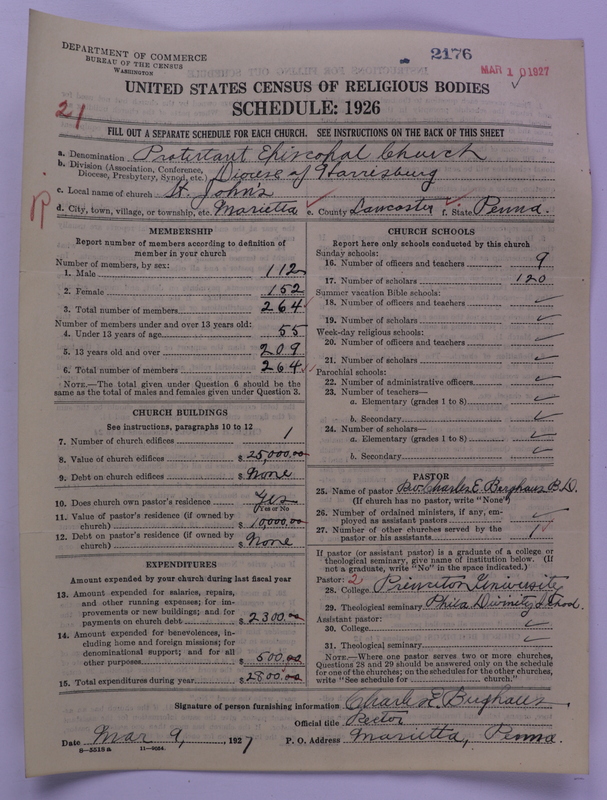 DEPARTMENT OF COMMERCE
BUREAU OF THE CENSUS
WASHINGTON
2176
MAR 10 1927
UNITED STATES CENSUS OF RELIGIOUS BODIES
SCHEDULE: 1926
21
FILL OUT A SEPARATE SCHEDULE FOR EACH CHURCH. SEE INSTRUCTIONS ON THE BACK OF THIS SHEET
a. Denomination Protestant Episcopal Church
b. Division (Association, Conference, Diocese, Presbytery, Synod, etc.) Diocese of Harrisburg
c. Local name of church St. John's
d. City, town, village, or township, etc. Marietta e. County Lancaster f. State Penna.
MEMBERSHIP
Report number of members according to definition of
member in your church
Number of members, by sex:
1. Male 112
2. Female 152
3. Total number of members 264
Number of members under and over 13 years old:
4. Under 13 years of age 55
5. 13 years old and over 209
6. Total number of members 264
NOTE.—The total given under Question 6 should be the
same as the total of males and females given under Question 3.
CHURCH BUILDINGS
See instructions, paragraphs 10 to 12
7. Number of church edifices 1
8. Value of church edifices $ 25,000.00
9. Debt on church edifices $ None
10. Does church own pastor's residence Yes
(Yes or No
11. Value of pastor's residence (if owned by
church) $ 10,000.00
12. Debt on pastor's residence (if owned by
church) $ None
EXPENDITURES
Amount expended by your church during last fiscal year
13. Amount expended for salaries, repairs,
and other running expenses; for im-
provements or new buildings; and for
payments on church debt $ 2300.00
14. Amount expended for benevolences, in-
cluding home and foreign missions; for
denominational support; and for all
other purposes $ 500.00
15. Total expenditures during year $ 2800.00
CHURCH SCHOOLS
Report here only schools conducted by this church
Sunday schools:
16. Number of officers and teachers 9
17. Number of scholars 120
Summer vacation Bible schools:
18. Number of officers and teachers
19. Number of scholars
Week-day religious schools:
20. Number of officers and teachers
21. Number of scholars
Parochial schools:
22. Number of administrative officers
23. Number of teachers—
a. Elementary (grades 1 to 8)
b. Secondary
24. Number of scholars—
a. Elementary (grades 1 to 8)
b. Secondary
PASTOR
25. Name of pastor Rev. Charles E. Berghaus B.D.
(If church has no pastor, write "None")
26. Number of ordained ministers, if any, em-
ployed as assistant pastors
27. Number of other churches served by the
pastor or his assistants 1
If pastor (or assistant pastor) is a graduate of a college or
theological seminary, give name of institution below. (If
not a graduate, write "No" in the space indicated.)
Pastor: 2
28. College Princeton University
29. Theological seminary Phila Divinity School.
Assistant pastor:
30. College
31. Theological seminary
NOTE.—Where one pastor serves two or more churches,
Questions 28 and 29 should be answered only on the schedule
for one of the churches; on the schedules for the other churches,
write "See schedule for church."
Signature of person furnishing information Charles E. Berghaus
Official title Rector
Date Mar 9, 1927 P. O. Address Marietta, Penna.
8-5516a 11-9054